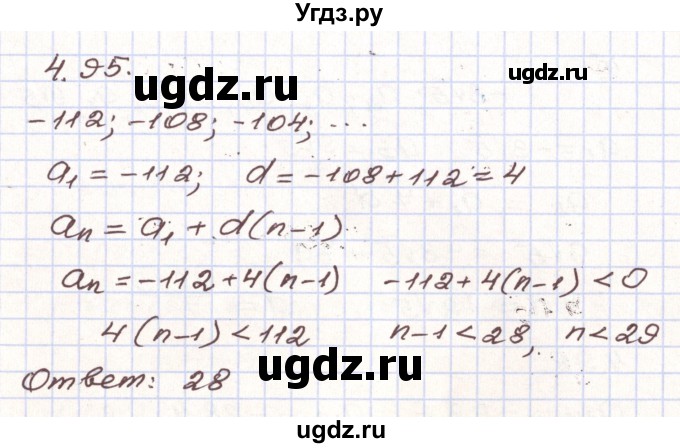 Угдз.ру
4.95.
ugdz.ru
-112; -108; -104; ...
a₁ = -112; d = -108+112 = 4
aₙ = a₁ + d(n-1)
ugdz.ru
aₙ = -112+4(n-1) -112+4(n-1) < 0
4(n-1) < 112 n-1 < 28, n < 29
Ответ: 28
ugdz.ru
ugdz.ru